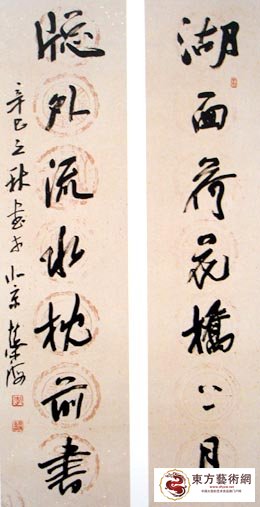 湖面荷花橋上月
牕外流水枕前書
辛巳之秋書于北京荣海
東方藝術網